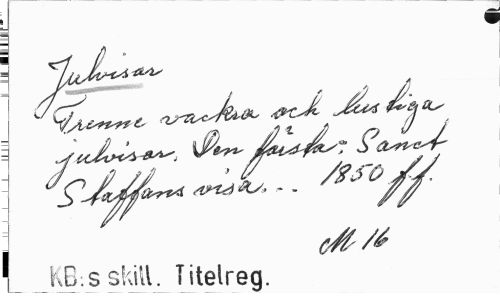 Julvisor
Trenne vackra och lustiga
julvisor. Den första: Sanct
Staffans visa... 1850 ff.
M 16
KB:s skill. Titelreg.